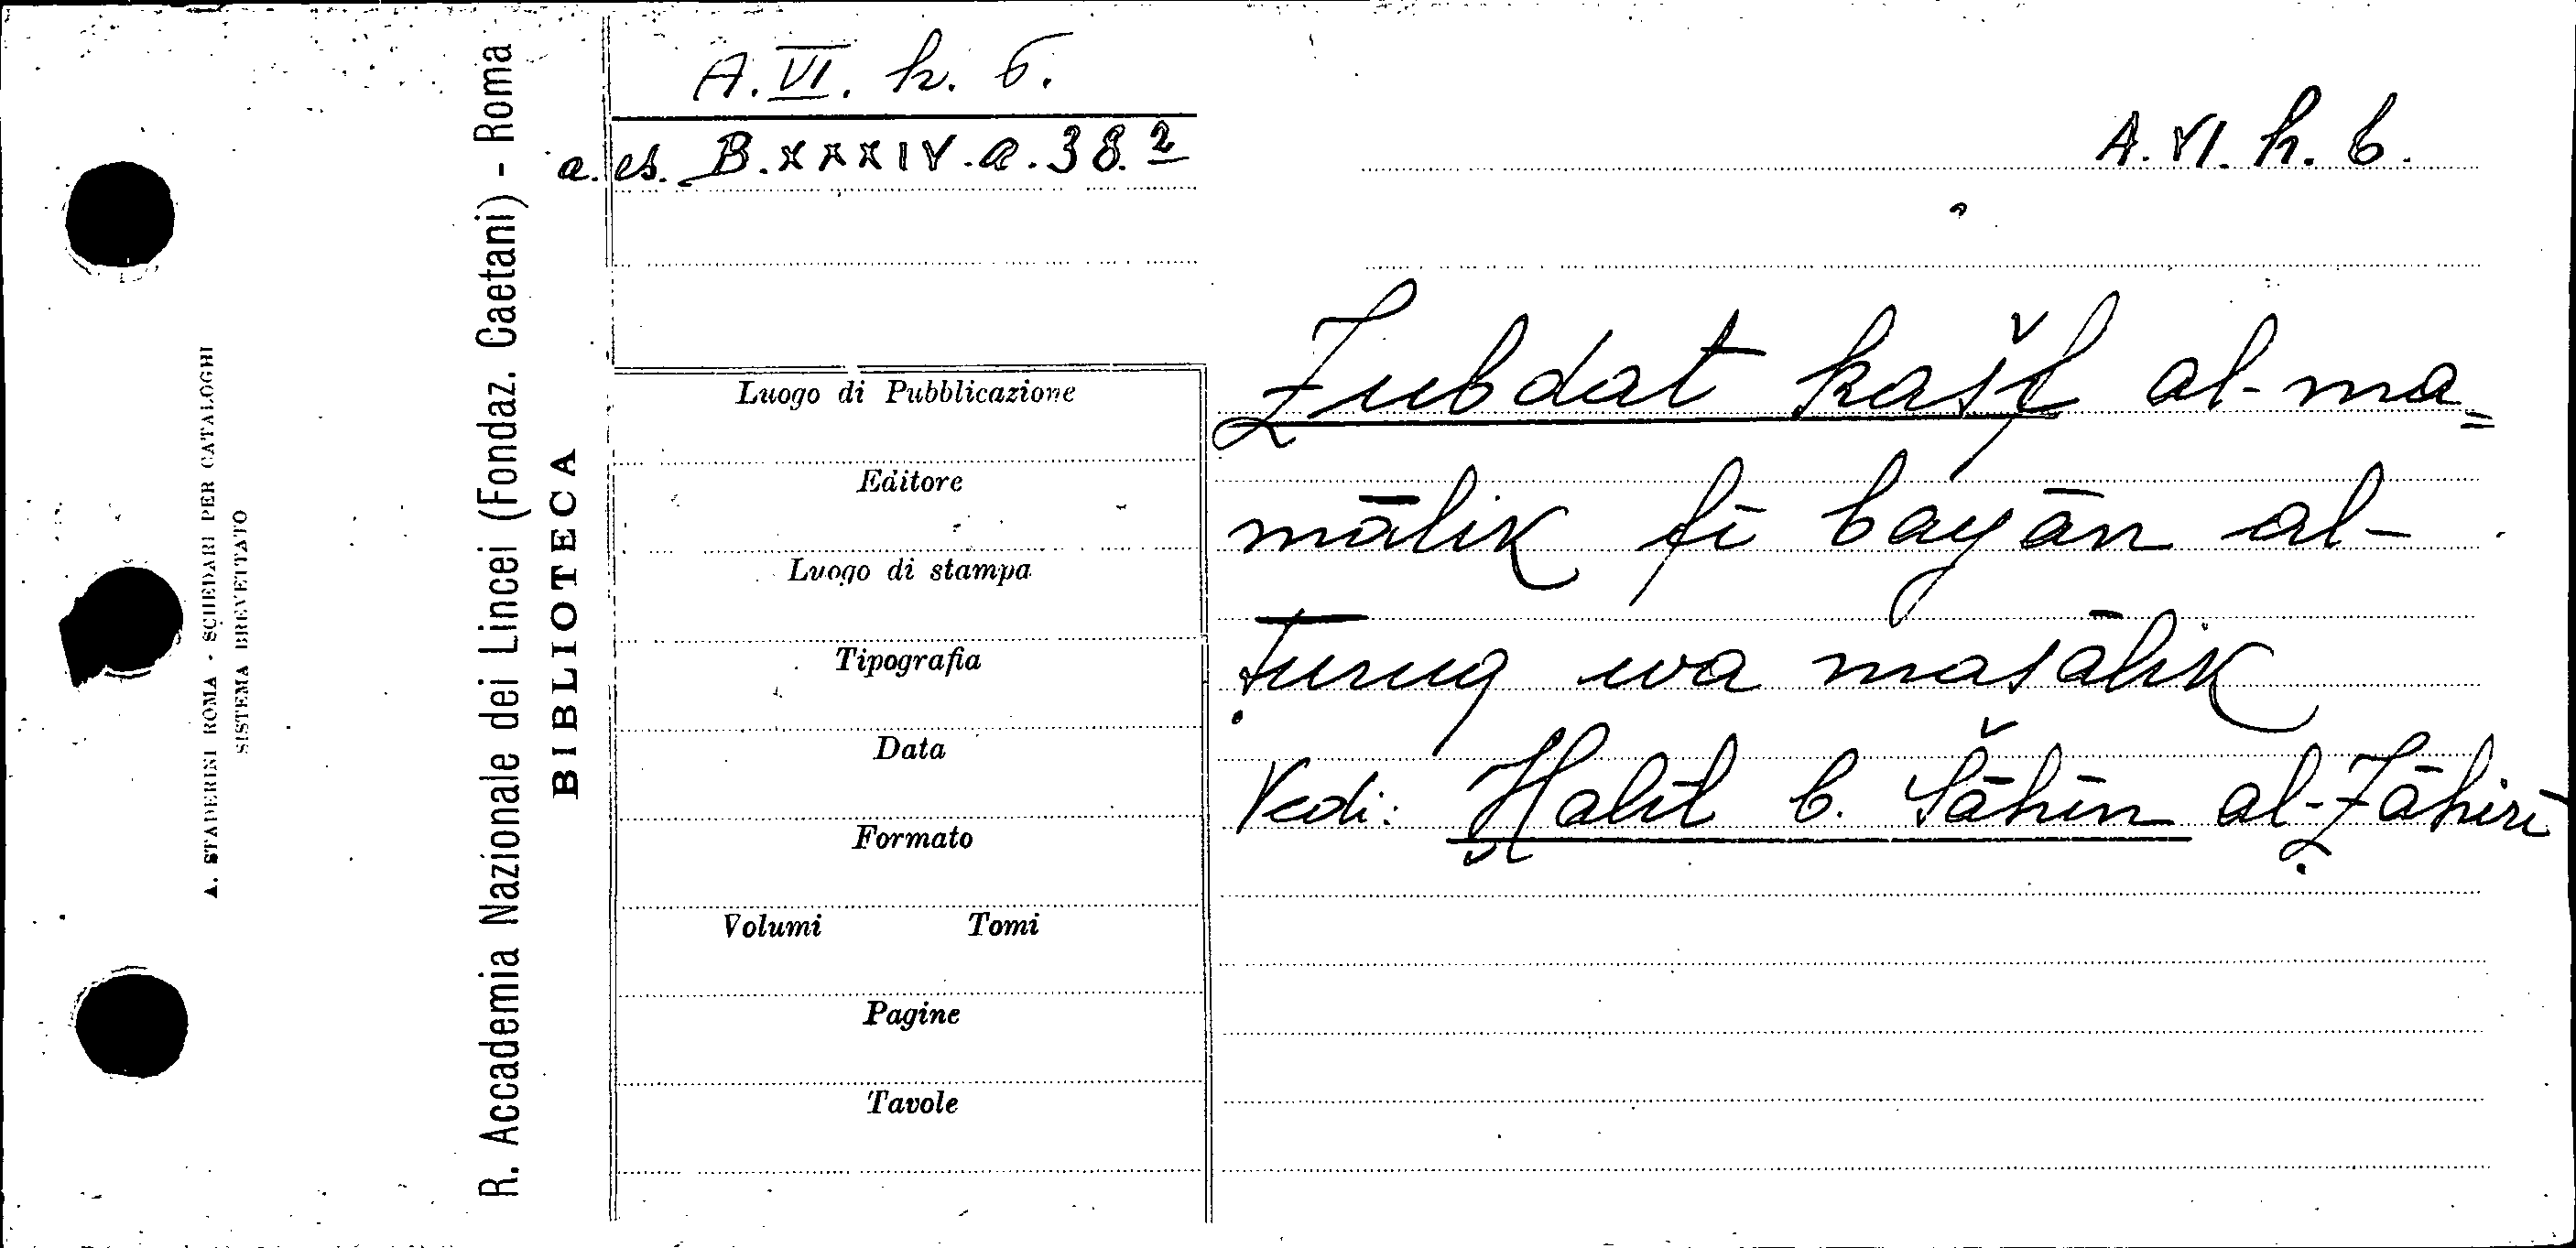 A. STADERINI ROMA - SCHEDARI PER CATALOGHI
SISTEMA BREVETTATO
R. Accademia Nazionale dei Lincei (Fondaz. Caetani) - Roma
BIBLIOTECA
A. VI. h. 6.
a. es. B. XXXIV. a. 38.2
Luogo di Pubblicazione
Editore
Luogo di stampa
Tipografia
Data
Formato
Volumi Tomi
Pagine
Tavole
A. VI. h. 6.
Zubdat kašf al-ma=
mālik fī bayān al-
ṭuruq wa masālik
Vedi: Ḫalīl b. Šāhīn al-Ẓāhirī